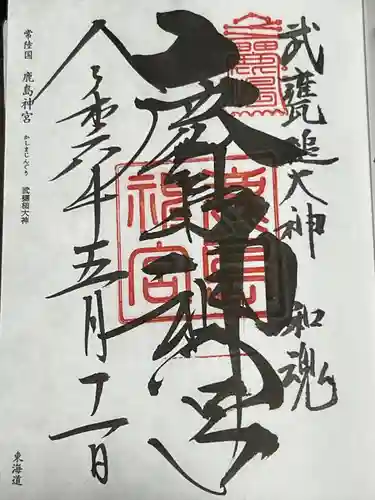 武甕槌大神 和魂
鹿島神宮
鹿島神宮
令和六年五月十一日
常陸国 鹿島神宮 かしまじんぐう 武甕槌大神
東海道